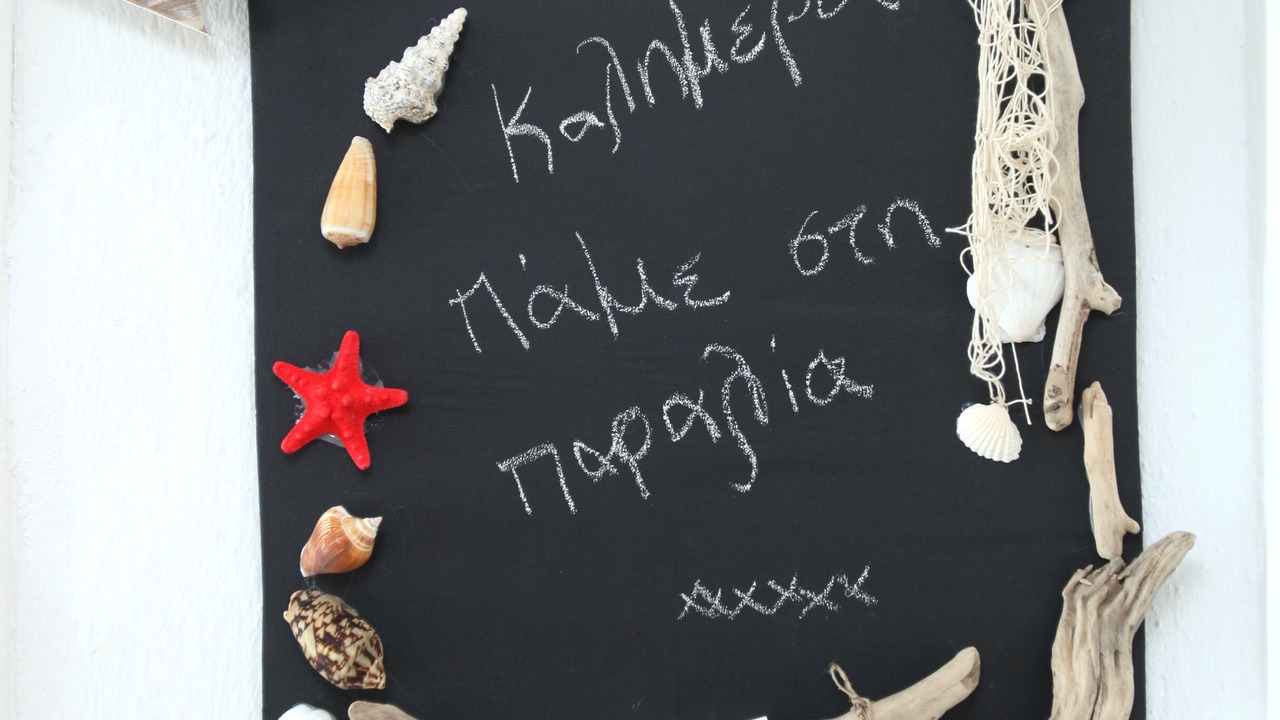 Καλημέρα
Πάμε στη
παραλία
xxxxxx